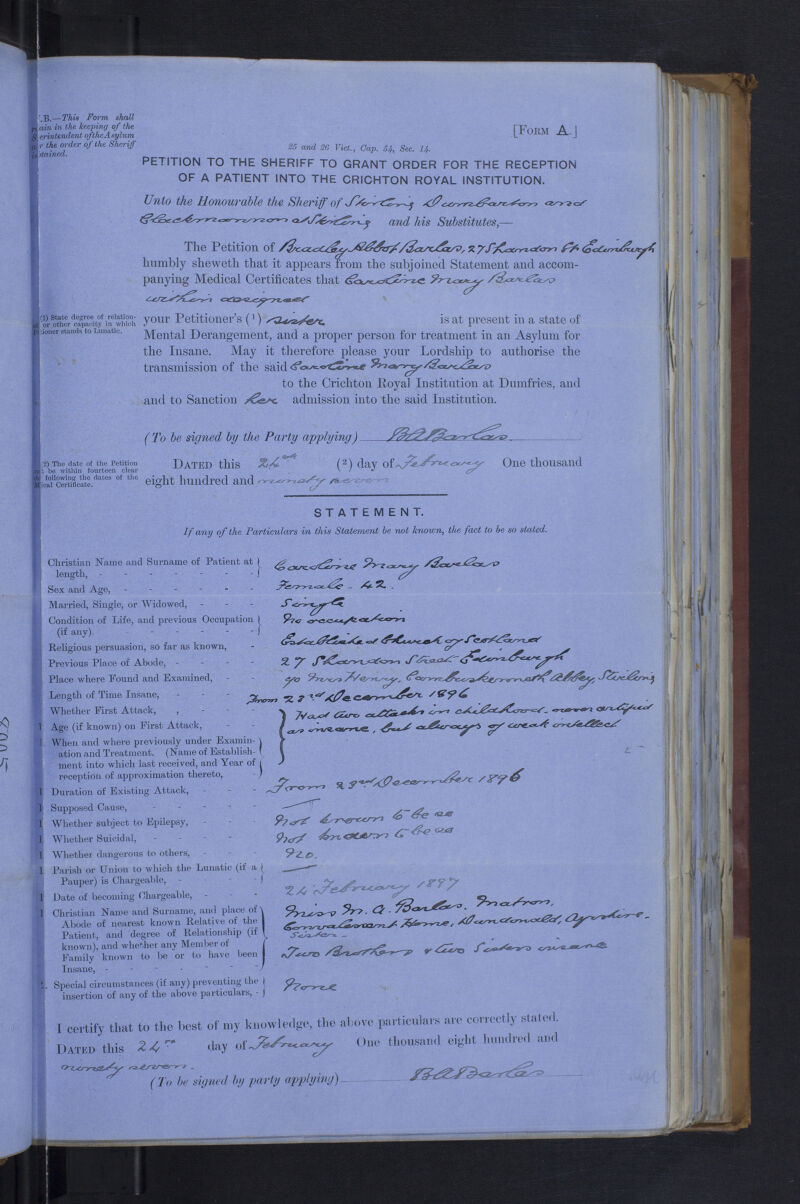 .B.—This Form shall
ain in the keeping of the
erintendent of the Asylum
r the order of the Sheriff
tained.
[FORM A.]
25 and 26 Vict., Cap. 54, Sec. 14.
PETITION TO THE SHERIFF TO GRANT ORDER FOR THE RECEPTION
OF A PATIENT INTO THE CRICHTON ROYAL INSTITUTION.
Unto the Honourable the Sheriff of Stirling Dumbarton and
Clackmannan at Stirling and his Substitutes,—
The Petition of Bradley Abbot Barlas, 27 Shandon St. Edinburgh
humbly sheweth that it appears from the subjoined Statement and accom-
panying Medical Certificates that Caroline Mary Barlas
within designed
(1) State degree of relation-
or other capacity in which
ioner stands to Lunatic.
your Petitioner's (1) sister is at present in a state of
Mental Derangement, and a proper person for treatment in an Asylum for
the Insane. May it therefore please your Lordship to authorise the
transmission of the said Caroline Mary Barlas
to the Crichton Royal Institution at Dumfries, and
and to Sanction her admission into the said Institution.
(To be signed by the Party applying) B A Barlas.
2) The date of the Petition
be within fourteen clear
following the dates of the
ical Certificate.
DATED this 24th (2) day of February One thousand
eight hundred and ninety seven
STATEMENT.
If any of the Particulars in this Statement be not known, the fact to be so stated.
Christian Name and Surname of Patient at length, - Caroline Mary Barlas
Sex and Age, - Female - 42.
Married, Single, or Widowed, - Single
Condition of Life, and previous Occupation (if any). - No occupation
Religious persuasion, so far as known, - Established Church of Scotland
Previous Place of Abode, - 27 Shandon Street Edinburgh
Place where Found and Examined, - c/o Mrs Henry, Cambuskenneth Abbey, Stirling
Length of Time Insane, - From 23rd December 1896
Whether First Attack, - Had two attacks in childhood. never certified
Age (if known) on First Attack, - as insane, but always of weak intellect
When and where previously under Examin-
ation and Treatment. (Name of Establish-
ment into which last received, and Year of
reception of approximation thereto,
Duration of Existing Attack, - From 23rd December 1896
Supposed Cause, - —
Whether subject to Epilepsy, - Not known to be so
Whether Suicidal, - Not known to be so
Whether dangerous to others, - No.
Parish or Union to which the Lunatic (if a
Pauper) is Chargeable, - —
Date of becoming Chargeable, - 24 February 1897
Christian Name and Surname, and place of
Abode of nearest known Relative of the
Patient, and degree of Relationship (if
known), and whether any Member of
Family known to be or to have been
Insane, -
Miss M. A. Barlas. Matron,
Convalescent Home, Dundonald, Ayrshire -
Sister -
Two Brothers & two Sisters insane
Special circumstances (if any) preventing the
insertion of any of the above particulars, - None
I certify that to the best of my knowledge, the above particulars are correctly stated.
DATED this 24th day of February One thousand eight hundred and
ninety seven.
(To be signed by party applying) B A Barlas